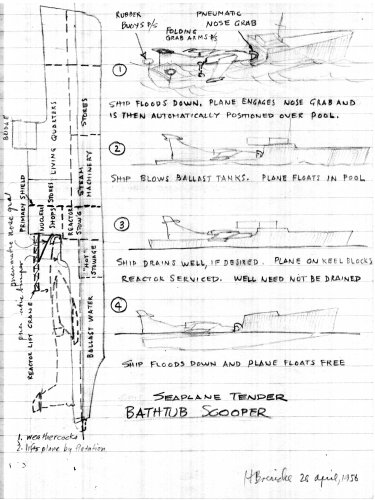 RUBBER
BUOYS P/S
PNEUMATIC
NOSE GRAB
FOLDING
GRAB ARMS P/S
1
SHIP FLOODS DOWN. PLANE ENGAGES NOSE GRAB AND
IS THEN AUTOMATICALLY POSITIONED OVER POOL.
2
SHIP BLOWS BALLAST TANKS. PLANE FLOATS IN POOL
3
SHIP DRAINS WELL, IF DESIRED. PLANE ON KEEL BLOCKS
REACTOR SERVICED. WELL NEED NOT BE DRAINED
4
SHIP FLOODS DOWN AND PLANE FLOATS FREE
SEAPLANE TENDER
BATHTUB SCOOPER
26 april, 1956
BRIDGE
LIVING QUARTERS
STORES
STORES
STEAM
MACHINERY
PRIMARY SHIELD
SHOPS
REACTOR
"HOT"
STOWAGE
BALLAST WATER
REACTOR LIFT CRANE
Pneumatic nose grab
1. weathercocks
2. lifts plane by flotation